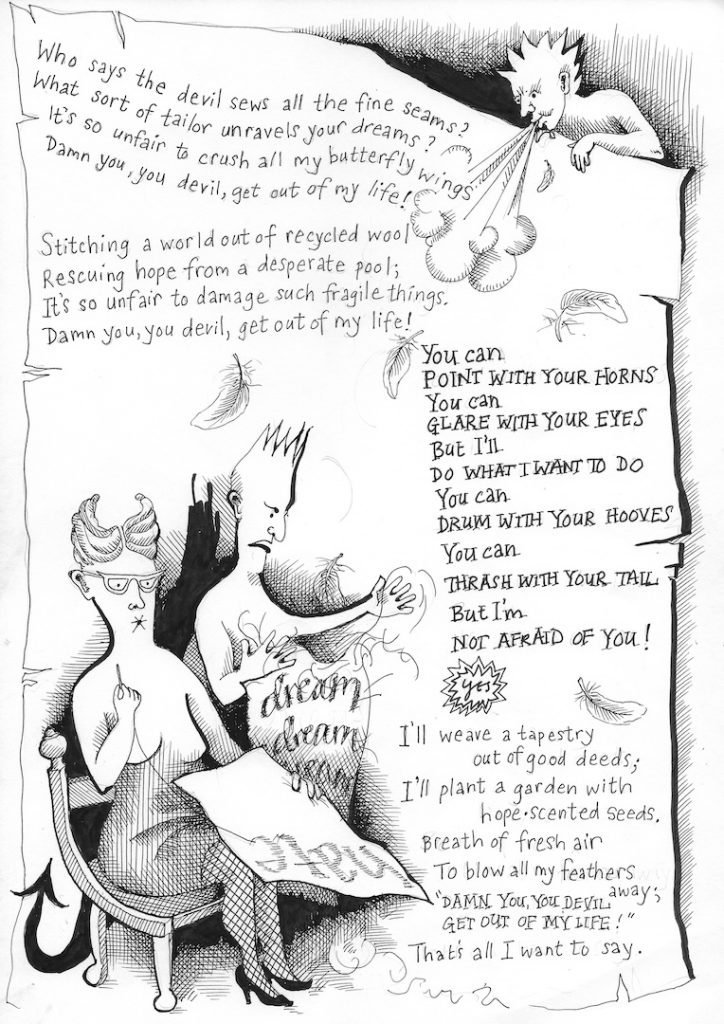 Who says the devil sews all the fine seams?
What sort of tailor unravels your dreams?
It's so unfair to crush all my butterfly wings
Damn you, you devil, get out of my life!
Stitching a world out of recycled wool
Rescuing hope from a desperate pool;
It's so unfair to damage such fragile things.
Damn you, you devil, get out of my life!
You can
POINT WITH YOUR HORNS
You can
GLARE WITH YOUR EYES
But I'll
DO WHAT I WANT TO DO
You can
DRUM WITH YOUR HOOVES
You can
THRASH WITH YOUR TAIL
But I'm
NOT AFRAID OF YOU!
yes
I'll weave a tapestry
out of good deeds;
I'll plant a garden with
hope-scented seeds.
Breath of fresh air
To blow all my feathers
away;
"DAMN YOU, YOU DEVIL
GET OUT OF MY LIFE!"
That's all I want to say.
dream
dream
dream